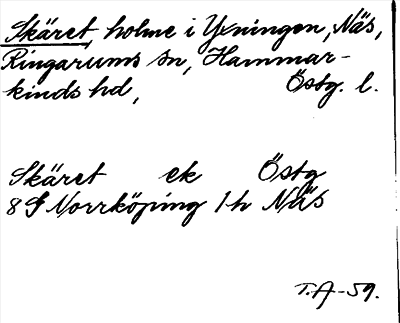 Skäret, holme i Yxningen, Näs,
Ringarums sn, Hammar-
kinds hd, Östg. l.
Skäret ek Östg
8 G Norrköping 1 h Näs
T.A-59.